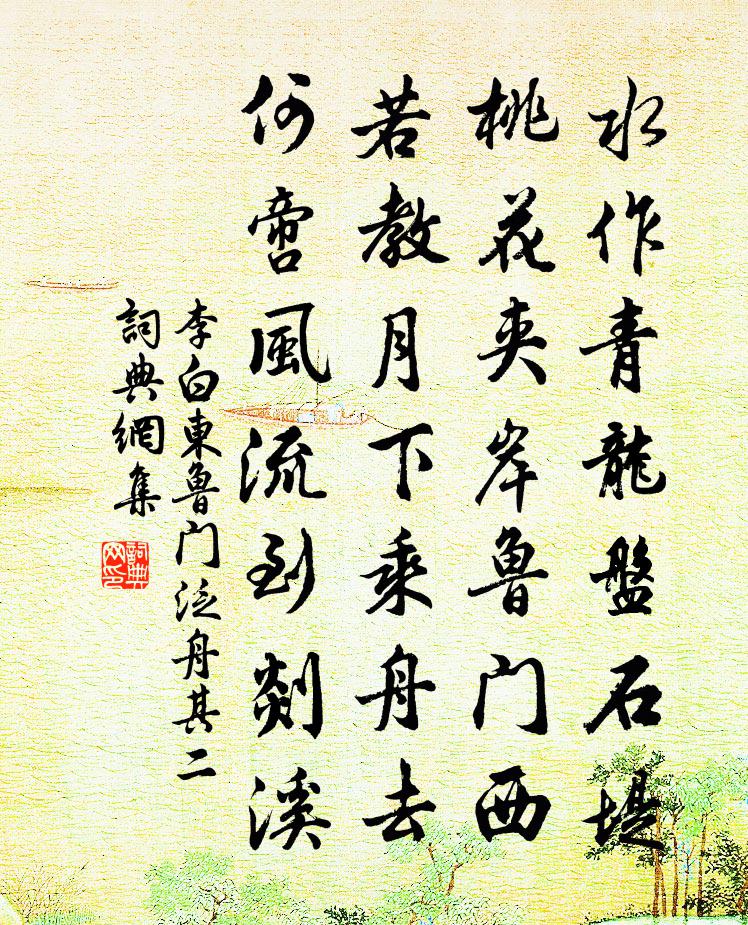 水作青龍盤石堤
桃花夾岸魯门西
若教月下乘舟去
何啻風流到剡溪
李白東魯门泛舟其二
詞典網集
詞典
网印